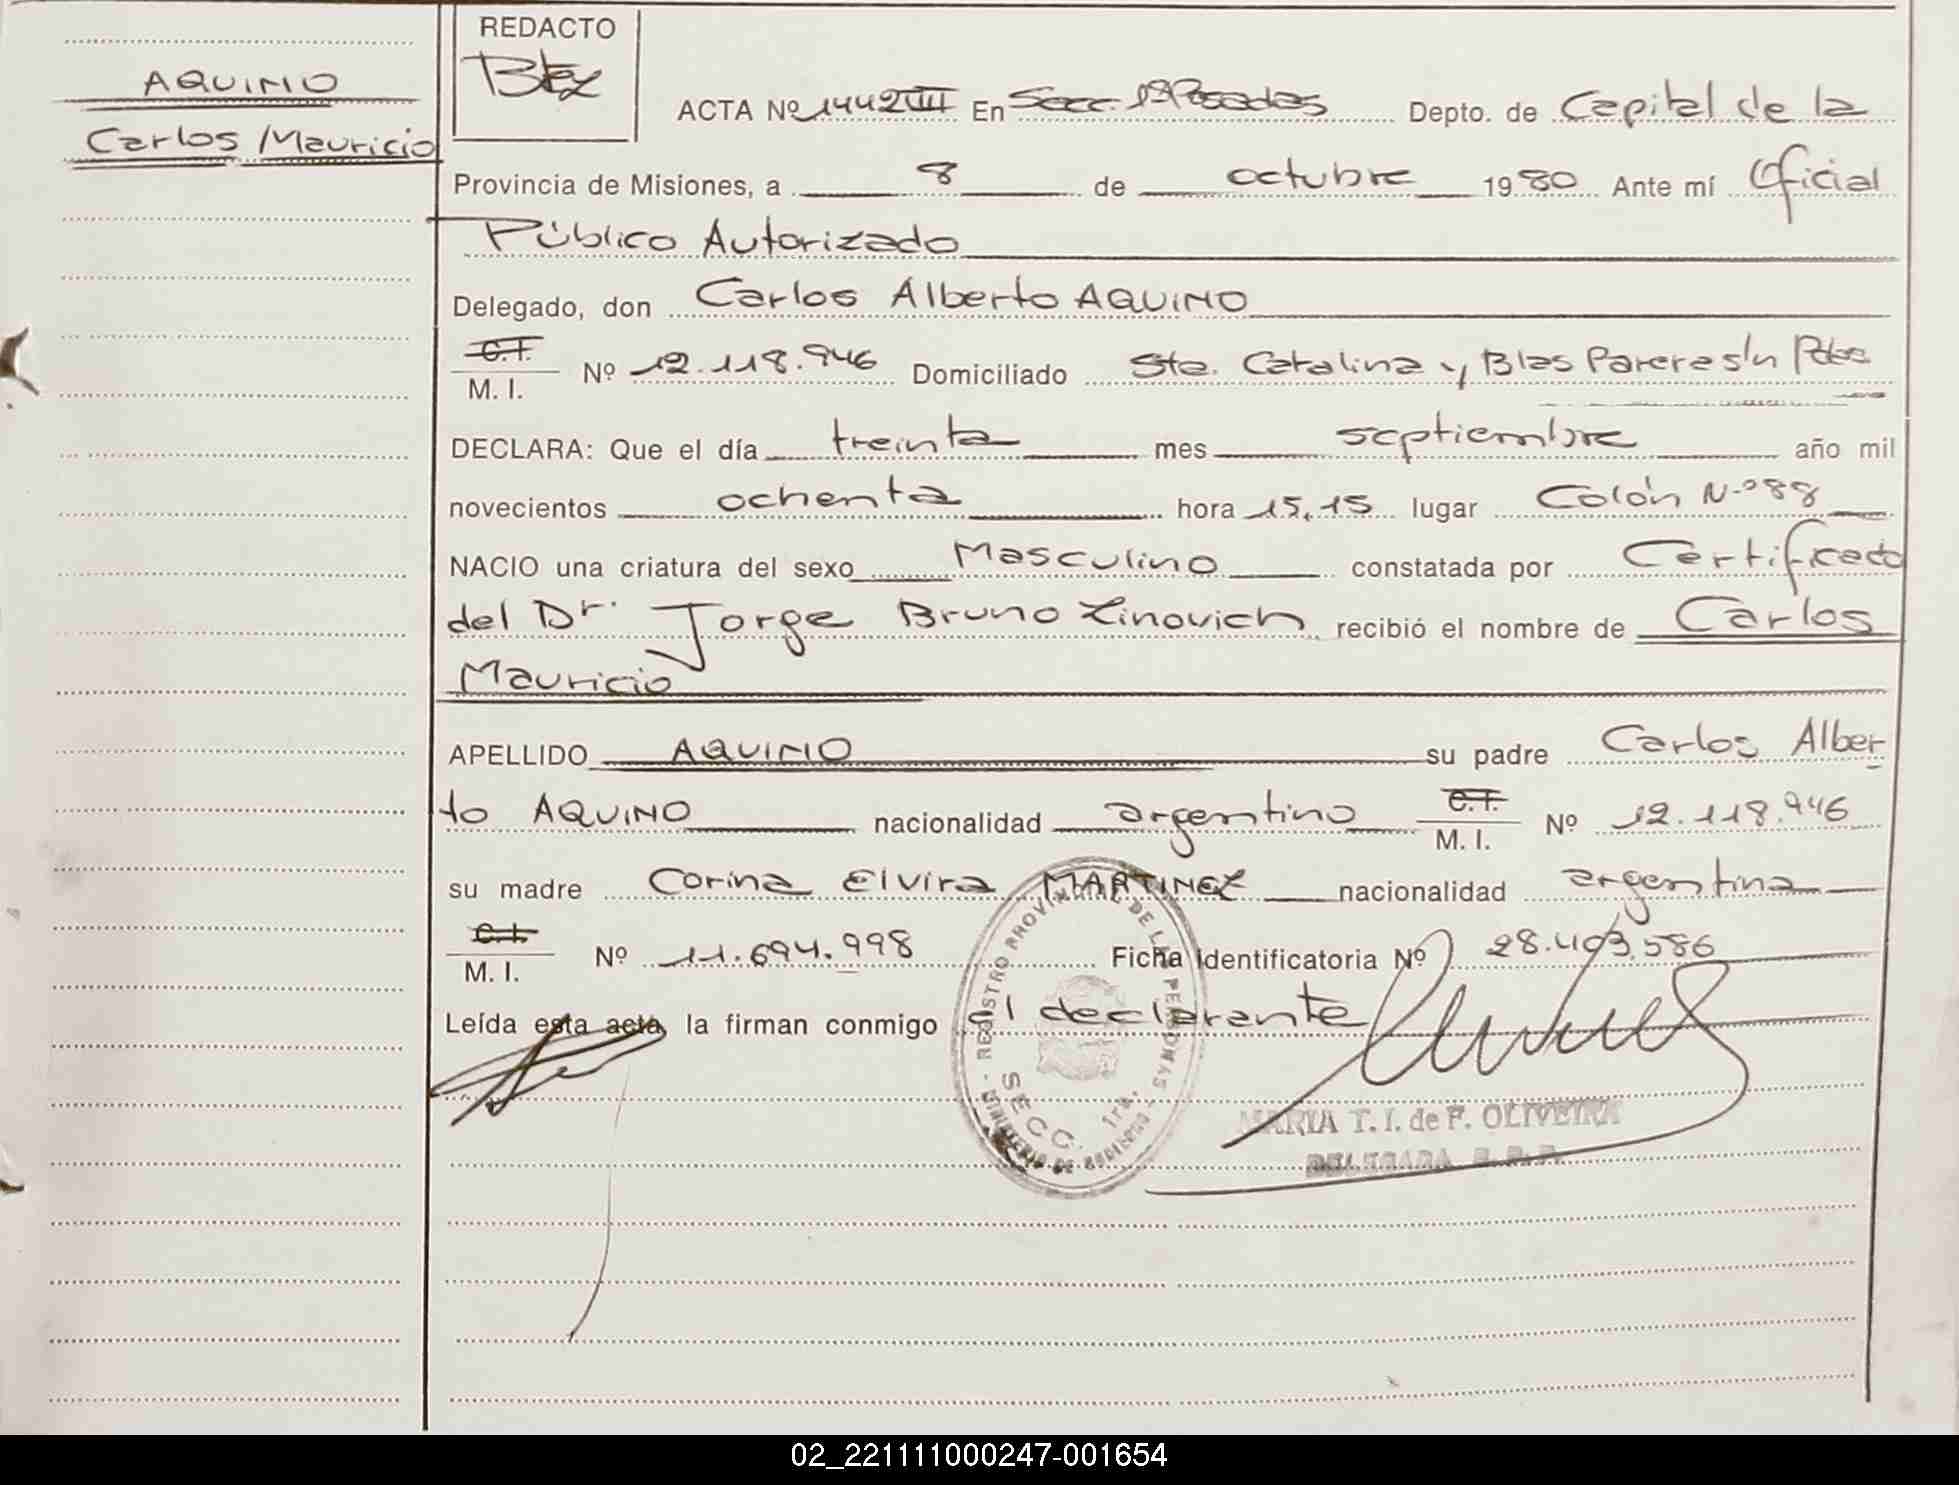 AQUINO
Carlos Mauricio
REDACTO
ACTA Nº 1442 VIII En Secc. 1ª Posadas Depto. de Capital de la
Provincia de Misiones, a 8 de octubre 1980 Ante mí Oficial
Público Autorizado
Delegado, don Carlos Alberto AQUINO
C.I.
M. I. Nº 12.118.946 Domiciliado Sta. Catalina y Blas Parera s/n Pdas
DECLARA: Que el día treinta mes septiembre año mil
novecientos ochenta hora 15,15 lugar Colón Nº 88
NACIO una criatura del sexo Masculino constatada por Certificado
del Dr. Jorge Bruno Zinovich recibió el nombre de Carlos
Mauricio
APELLIDO AQUINO su padre Carlos Alber
to AQUINO nacionalidad argentino C.I. M. I. Nº 12.118.946
su madre Corina Elvira MARTINEZ nacionalidad argentina
C.I.
M. I. Nº 11.694.998 Ficha Identificatoria Nº 28.403.586
Leída esta acta, la firman conmigo el declarante
REGISTRO PROVINCIAL DE LAS PERSONAS - MINISTERIO DE GOBIERNO -
SECC. 1ra.
MARIA T. I. de F. OLIVEIRA
DELEGADA R. P. P.
02_221111000247-001654